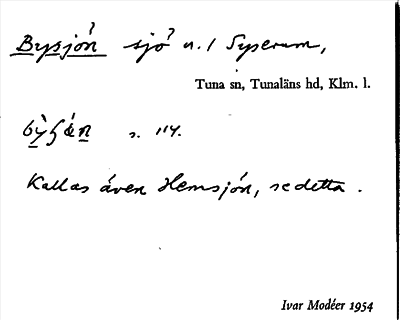 Bysjön sjö n. / Syserum,
Tuna sn, Tunaläns hd, Klm. l.
s. 114.
Kallas även Hemsjön, se detta.
Ivar Modéer 1954